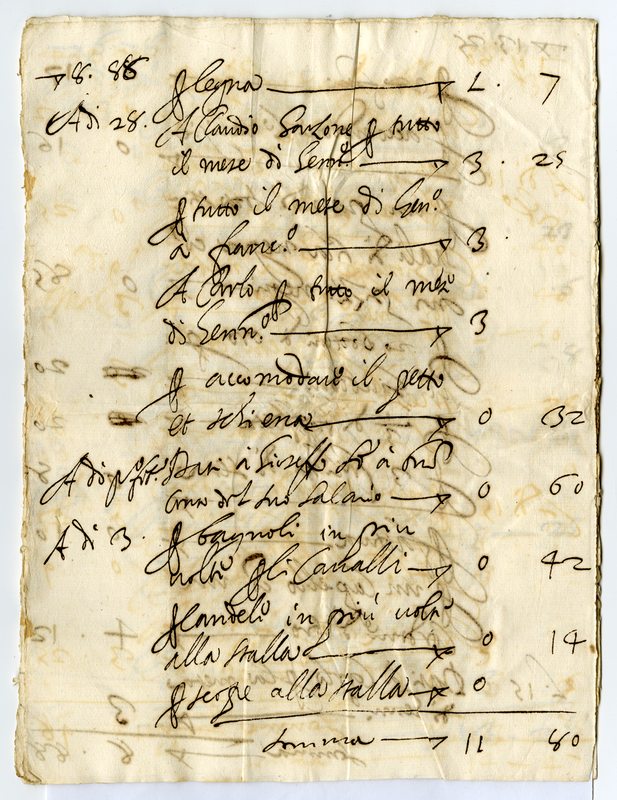 8. 88 p legna 1. 7
Adi 28. A Claudio Garzone p tutto
il mese di Genn.o 3. 25
p tutto il mese di Gen.o
à franc.o 3.
A Carlo p tutto il mese
di Genn.o 3
p accomodare il petto
et schiena 0 32
Adi p.o Dati à Giuseffo à
conto del suo salario 0 60
Adi 3. p bagnoli in piu
volte p li Cavalli 0 42
p Candele in più volte
alla stalla 0 14
p scope alla stalla 0
somma 11 80